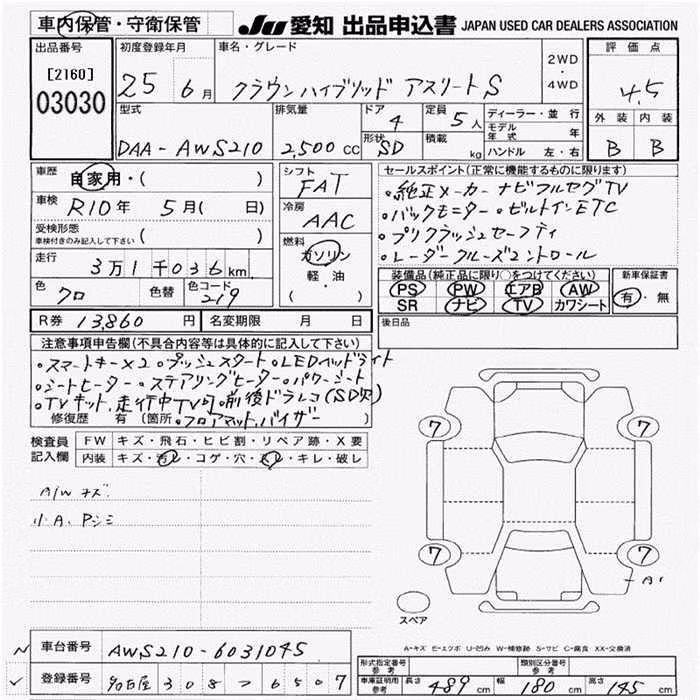 車内保管・守衛保管
JU 愛知 出品申込書 JAPAN USED CAR DEALERS ASSOCIATION
出品番号
[2160]
03030
初度登録年月
25 6月
車名・グレード
クラウンハイブリッド アスリートS
2WD
・
4WD
評価点
4.5
外装 内装
B B
型式
DAA-AWS210
排気量
2,500 CC
ドア
4
形状
SD
定員
5人
積載
kg
ディーラー・並行
モデル年式 年
ハンドル 左・右
車歴 自家用・( )
車検 R10年 5月( 日)
受検形態
車検付きのみ記入して下さい ( )
走行 3万1千036km
色 クロ 色替 色コード 219
R券 13,860 円 名変期限 月 日
シフト
FAT
冷房
AAC
燃料
ガソリン
軽・油
( )
セールスポイント(正常に機能するものに限ります)
・純正メーカーナビフルセグTV
・バックモニター・ビルトインETC
・プリクラッシュセーフティ
・レーダークルーズコントロール
装備品(純正品に限り○をつけてください)
PS PW エアB AW
SR ナビ TV カワシート
新車保証書
有・無
後日品
注意事項申告欄(不具合内容等は具体的に記入して下さい)
・スマートキー×2・プッシュスタート・LEDヘッドライト
・シートヒーター・ステアリングヒーター・パワーシート
・TVキット,走行中TV可・前後ドラレコ(SD欠)
修復歴 有 (箇所 ・フロアマット,バイザー )
検査員記入欄
FW キズ・飛石・ヒビ割・リペア跡・X要
内装 キズ・汚レ・コゲ・穴・スレ・キレ・破レ
A/Wキズ
小A,Pシミ
7 7
7 7
A1
スペア
A-キズ E-エクボ U-凹み W-補修跡 S-サビ C-腐食 XX-交換済
車台番号 AWS210-6031045
登録番号 名古屋 308 ス 6507
形式指定番号 参考
類別区分番号 参考
車庫証明用 参考 長さ 489 cm 幅 180 cm 高さ 145 cm